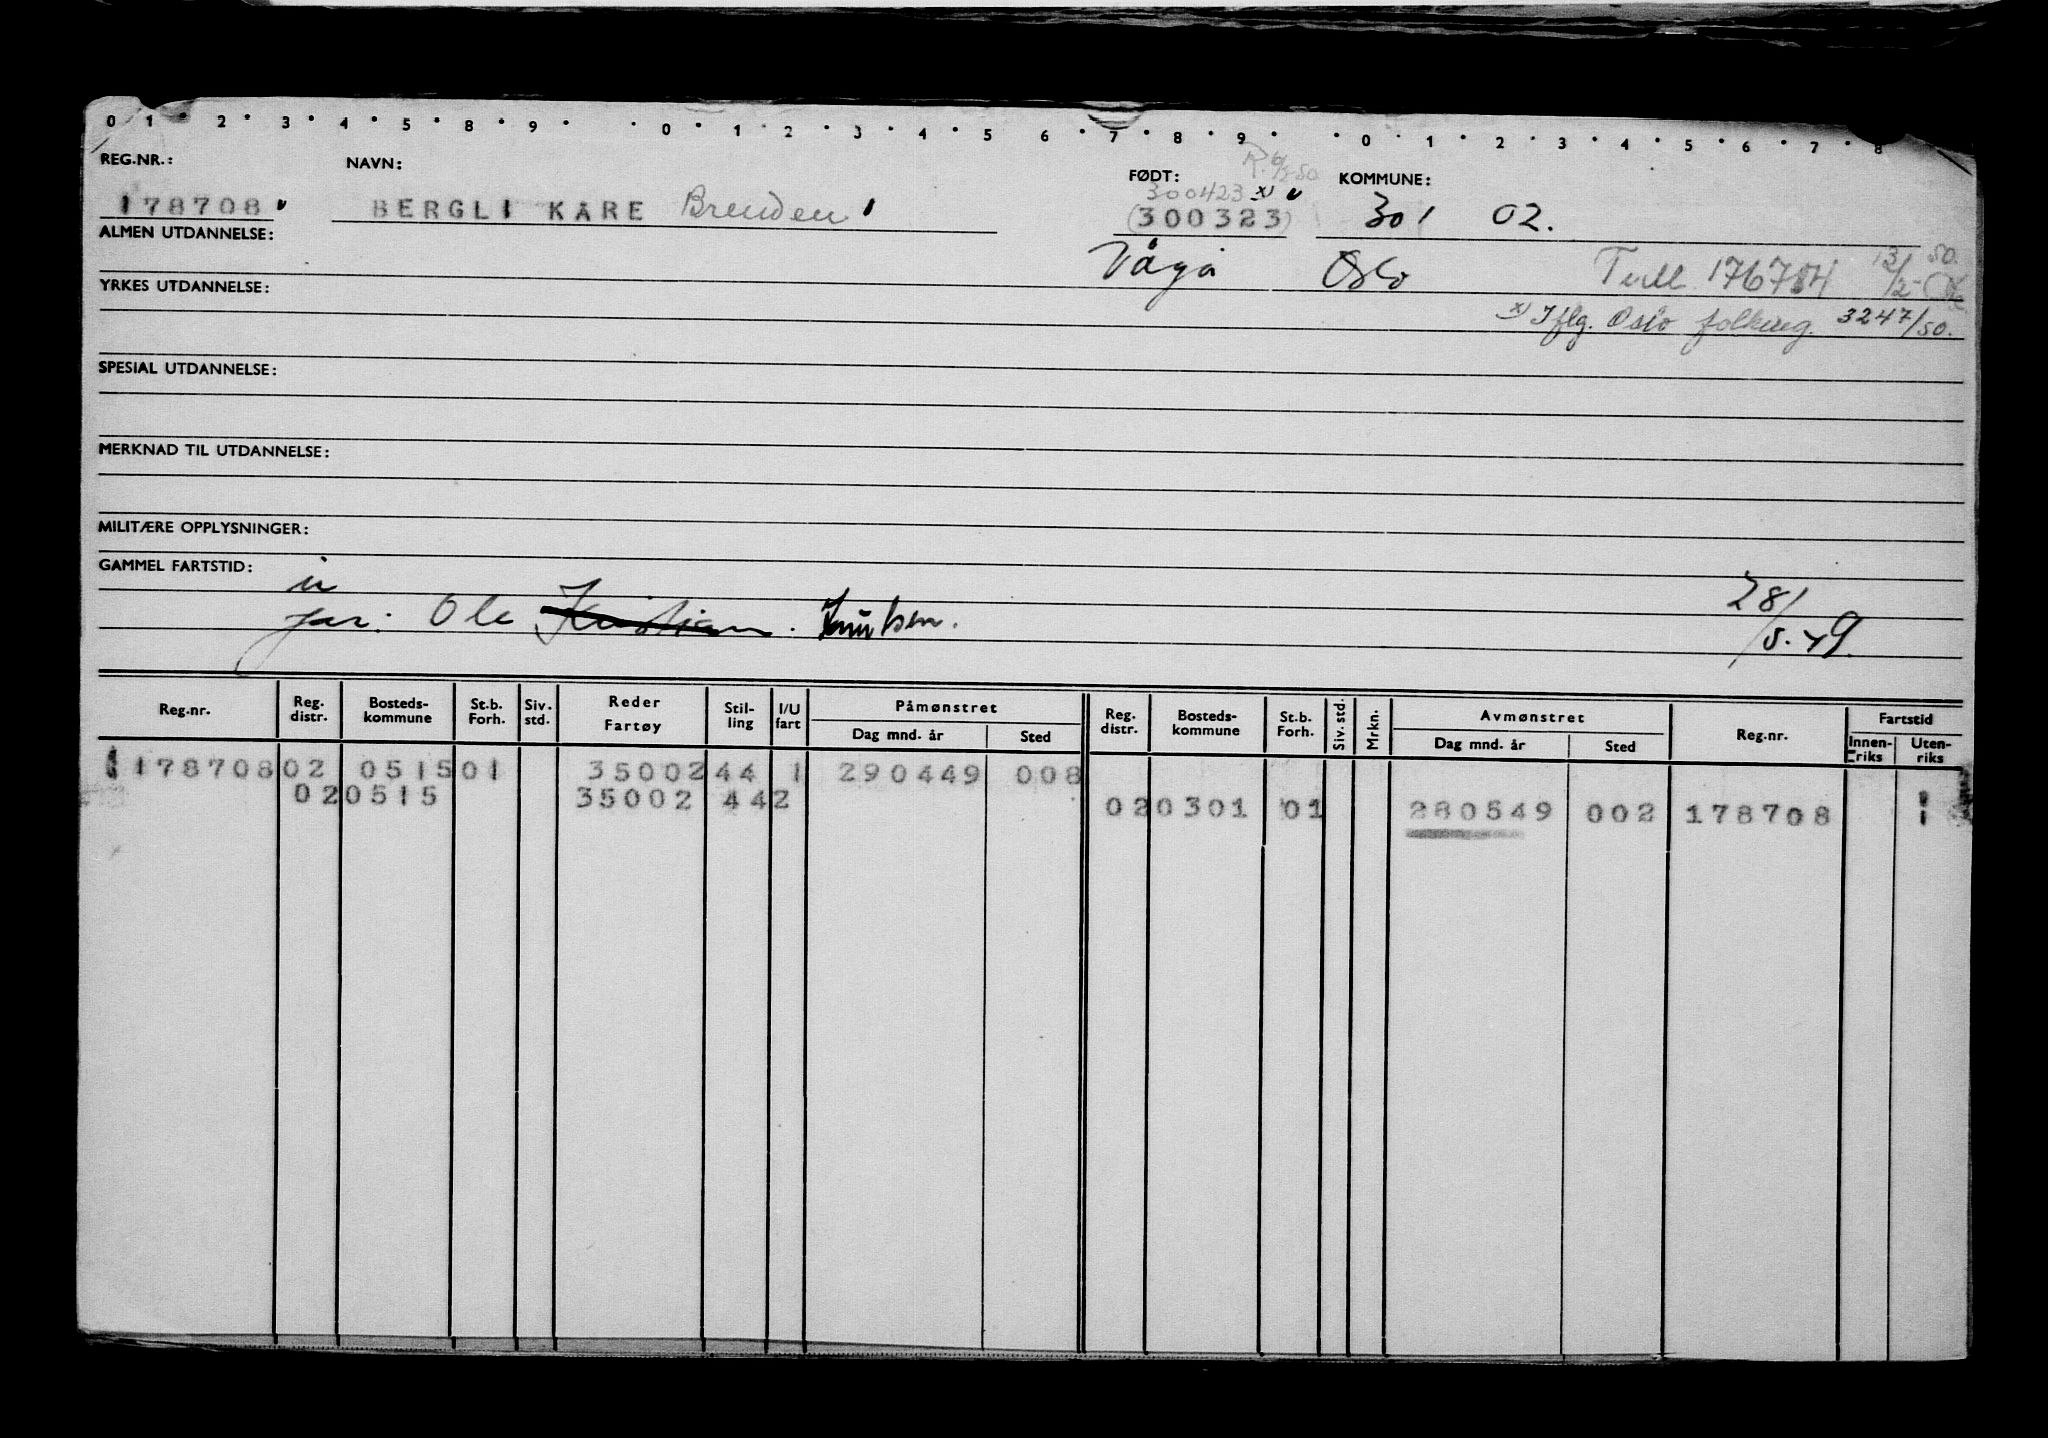 0 1 2 3 4 5 8 9 0 1 2 3 4 5 6 7 8 9 0 1 2 3 4 5 6 7 8
REG.NR.: NAVN: FØDT: KOMMUNE:
300423 x)
178708 BERGLI KÅRE Brenden (300323) 301 02.
ALMEN UTDANNELSE:
Vågå Oslo 176704 13/2-50.
YRKES UTDANNELSE:
x) Iflg. Oslo folkereg. 3247/50.
SPESIAL UTDANNELSE:
MERKNAD TIL UTDANNELSE:
MILITÆRE OPPLYSNINGER:
GAMMEL FARTSTID:
far: Ole Kristian. Knutsen. 28/5.49.
Reg.nr. Reg. distr. Bosteds-kommune St.b. Forh. Siv. std. Reder Fartøy Stil-ling I/U fart Påmønstret Dag mnd. år Sted Reg. distr. Bosteds-kommune St.b. Forh. Siv. std. Mrkn. Avmønstret Dag mnd. år Sted Reg.nr. Fartstid Innen-riks Uten-riks
178708 02 0515 01 35002 44 1 290449 008
02 0515 35002 44 2 02 0301 01 280549 002 178708 1